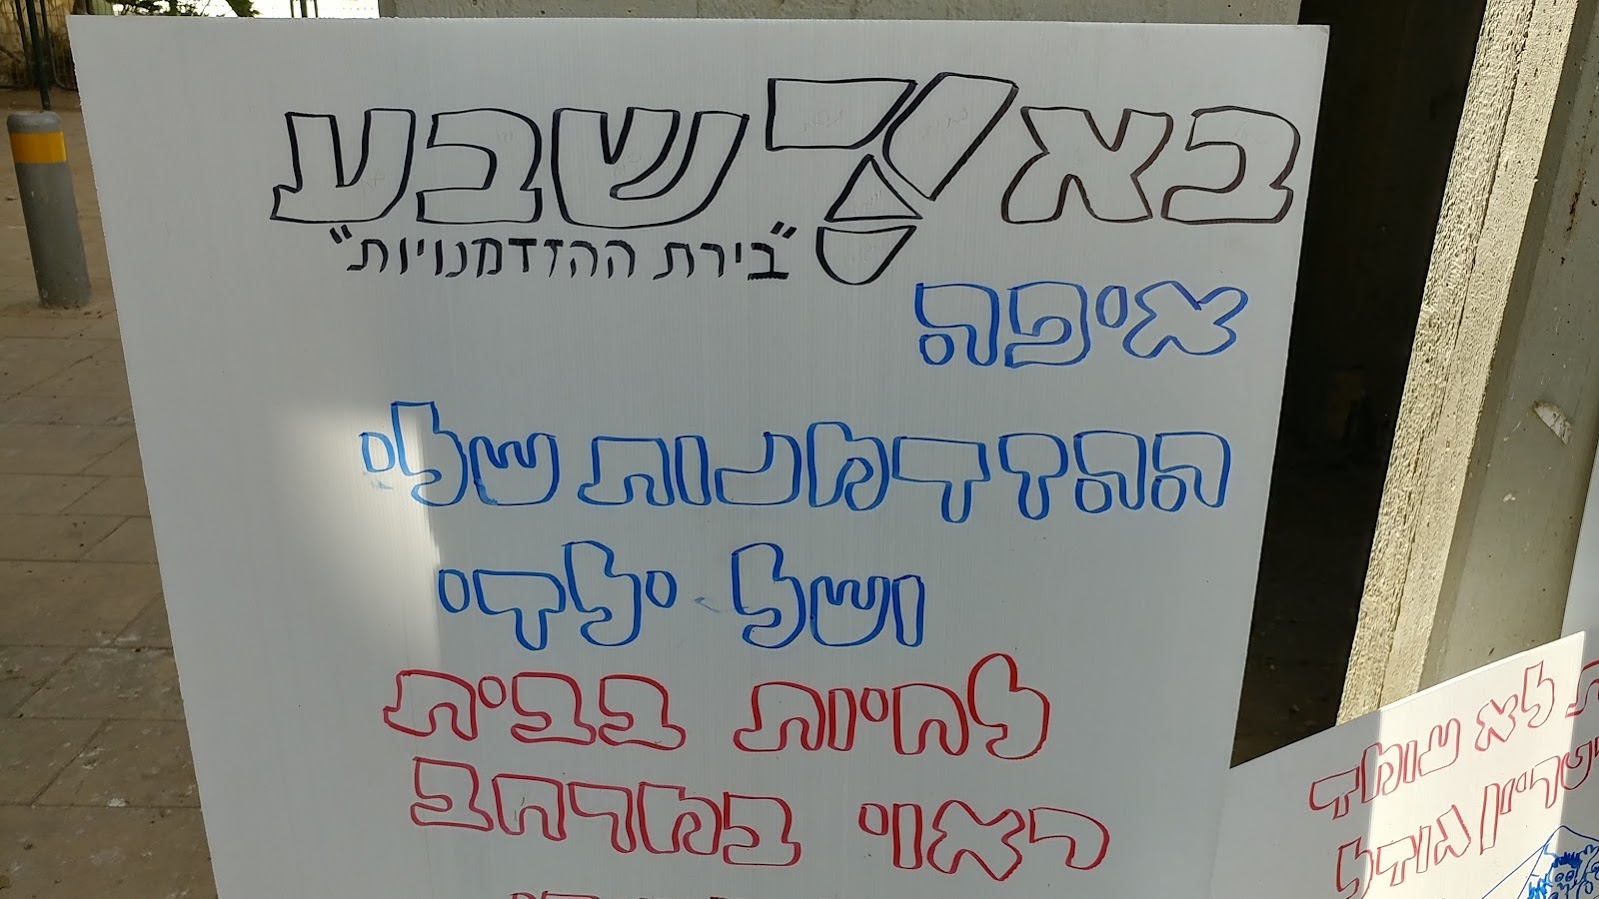 באר שבע
"בירת ההזדמנויות"
איפה
ההזדמנות שלי
ושל ילדי
לחיות בבית
ראוי במרחב
ת לא עומד
שריון גודל